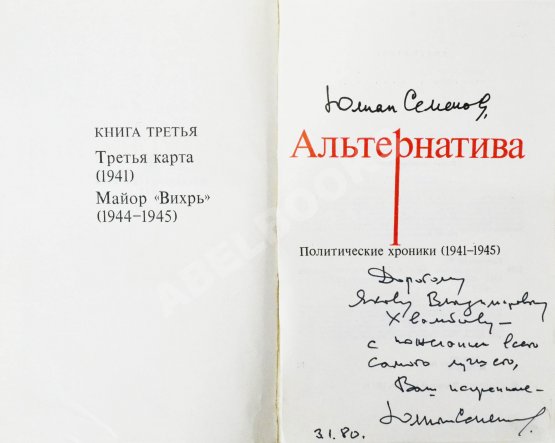 КНИГА ТРЕТЬЯ
Третья карта
(1941)
Майор «Вихрь»
(1944–1945)
Юлиан Семенов,
Альтернатива
Политические хроники (1941–1945)
Дорогому
Якову Владимировичу
с пожеланием всего
самого лучшего,
Ваш искренне –
Юлиан Семенов
3 1. 80.